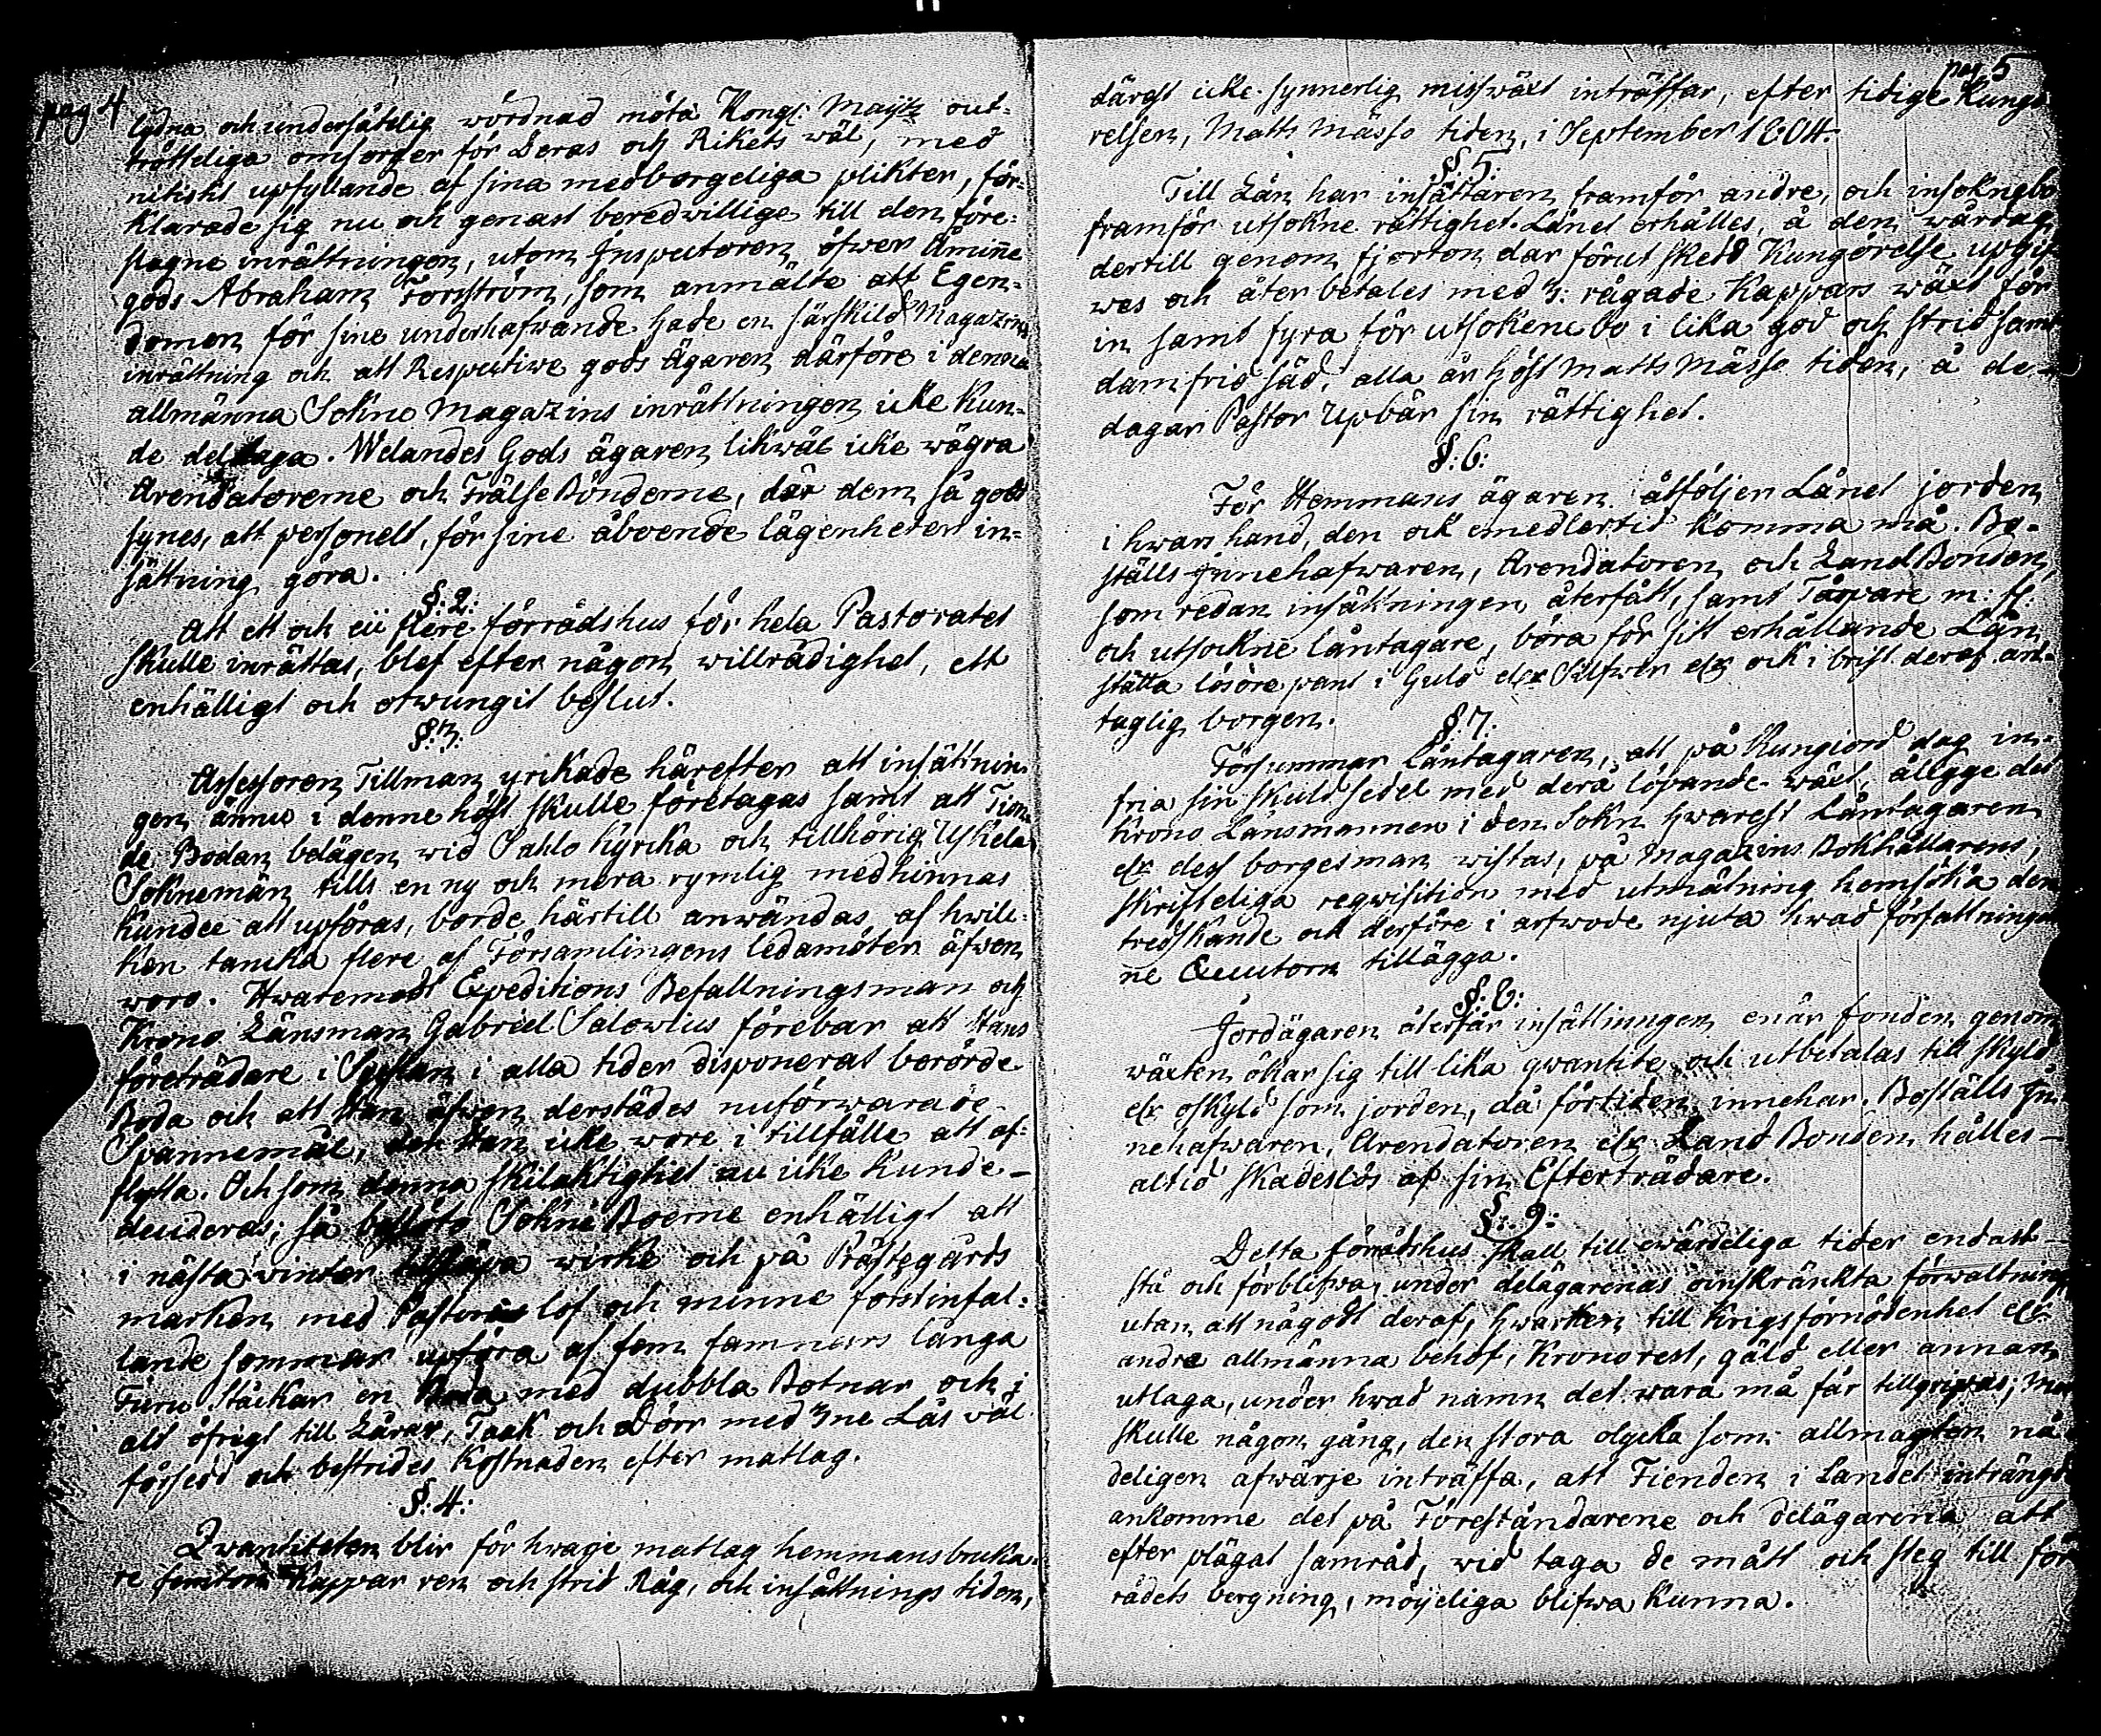 pag 4
lydna och undersåtelig wördnad möta Kongl: Maÿtz out-
trötteliga omsorger för Deras och Rikets wäl, med
nitiskt upfyllande af sina medborgeliga plikter, för-
klarade sig nu och genast beredwillige till den före-
slagne inrättningen, utom Inspectoren öfwer Åminne
gods Abraham Forsström, som anmälte att Egen-
domen för sine underhafwande hade en särskild Magazins
inrättning och att Respective gods Ägaren därföre i denna
allmänna Sokne Magazins inrättningen icke kun-
de deltaga. Welandes Gods ägaren likwäl icke wägra
Arendatorerne och Frälse Bönderne, där dem så godt
synes, att personelt, för sine åboende lägenheter in-
sättning göra.
§: 2:
Att ett och eii flere förrådshus för hela Pastoratet
skulle inrättas, blef efter någon willrådighet, ett
enhälligt och otwungit beslut.
§: 3:
Assessoren Tillman yrkade härefter att insättnin-
gen ännu i denne höst skulle företagas samt att Tion-
de Bodan belägen wid Sahlo Kyrcka och tillhörig Uskela
Soknemän tills en ny och mera rymlig medhinnas
hundee att upföras, borde härtill anwändas af hwil-
ken tancka flere af Församlingens ledamöter äfwen
woro. Hwaremot Expeditions Befallningsman och
Krono Länsman Gabriel Salowius förebar att Hans
företrädare i Sysslan i alla tider disponerat berörde
Boda och att Han äfwen derstädes nu förwarade
Spannemål, den Han icke wore i tillfälle att af-
flytta. Och som denna skiläktighet nu icke kunde
deciderас; så beslöto Sokne Boerne enhälligt att
i nästa winter wirke och på Prästegårds
marken med Pastoris lof och minne förstinfal-
lande sommar upföra af fem famnars långa
Furu Stäckar en Boda med dubbla Botnar och i
alt öfrigt till Lårar, Taak och Dörr med 3ne Lås väl
försedd och bestrides Kostnaden efter matlag.
§: 4:
Qvantiteten blir för hwarje matlag hemmansbruka-
re femton Kappar ren och strid Råg, och insättnings tiden,
pag 5
därest icke synnerlig missväxt inträffar, efter tidige Kungö
relsen, Matts Mässo tiden, i September 1804.
§: 5:
Till Lån har insättaren framför andre, och insoknebo
framför utsokne rättighet. Lånet erhålles, å den wårdag
dertill genom fjorton dar förut skedd Kungörelse upgif-
wes och återbetales med 3: rågade Kappars wäxt för
in samt fyra för utsokene bo i lika god och strid samt
damfrid säd, alla år höst Matts Mässo tiden, å de
dagar Pastor Upbär sin rättighet.
§: 6:
För Hemmans ägaren åtföljer Lånet jorden
i hwars hand, den ock emedlertid komma må. Bo-
ställs Innehafwaren, Arendatoren och Land Bonden,
som redan insättningen återfått, samt Torpare m: fl:
och utsockne låntagare, böra för sitt erhållande Lån,
ställa lösöre pant i Guld elr Silfwer elr ock i brist deraf ant-
taglig borgen.
§: 7:
Försummar Låntagaren, att på Kungjord dag in-
fria sin skuldsedel med derå löpande wäxt, ålegge det
Krono Länsmannen i den Sokn hwarest Låntagaren
elr dess borgesman wistas, på Magazins Bokhållarens,
skrifteliga reqwisition med utmätning hemsöka den
tredskande och derföre i arfwode njuta hwad författningar-
ne Executorn tillägga.
§: 8:
Jordägaren återfår insättningen enär fonden genom
wäxten ökar sig till lika qwantite och utbetalas till skyld
elr oskyld som jorden, då förtiden innehar. Boställs In-
nehafwaren, Arendatoren elr Land Bonden hålles
altid skadeslös af sin Efterträdare.
§: 9:
Detta förrådshus skall till ewärdeliga tider endast
stå och förblifwa under delägarenas oinskränkta förwaltning
utan att något deraf, hwarken till Krigsförnödenhet elr
andra allmänna behof, Kronorest, gäld eller annan
utlaga, under hwad namn det wara må får tillgripas; Men
skulle någon gång, den stora olycka som allmagten nå-
deligen afwärje inträffa, att Fienden i Landet intrångde
ankomme det på Föreståndarene och delägarena att
efter plägat samråd, wid taga de mått och steg till för-
rådets bergning, möyeliga blifwa kunna.